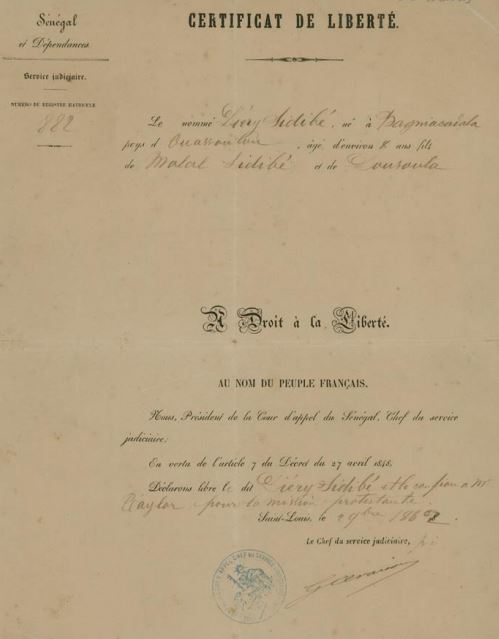 Sénégal
et Dépendances.
Service judiciaire.
NUMÉRO DU REGISTRE MATRICULE
882
CERTIFICAT DE LIBERTÉ.
Le nommé Diéry Sidibé, né à
pays d Ouassoulou, âgé d'environ 8 ans fils
de Sidibé et de
A Droit à la Liberté.
AU NOM DU PEUPLE FRANÇAIS.
Nous, Président de la Cour d'appel du Sénégal, Chef du service
judiciaire;
En vertu de l'article 7 du Décret du 27 avril 1848,
Déclarons libre le dit Diéry Sidibé et le confions à Mr
Taylor pour la mission protestante.
Saint-Louis, le 9bre 188
Le Chef du service judiciaire,